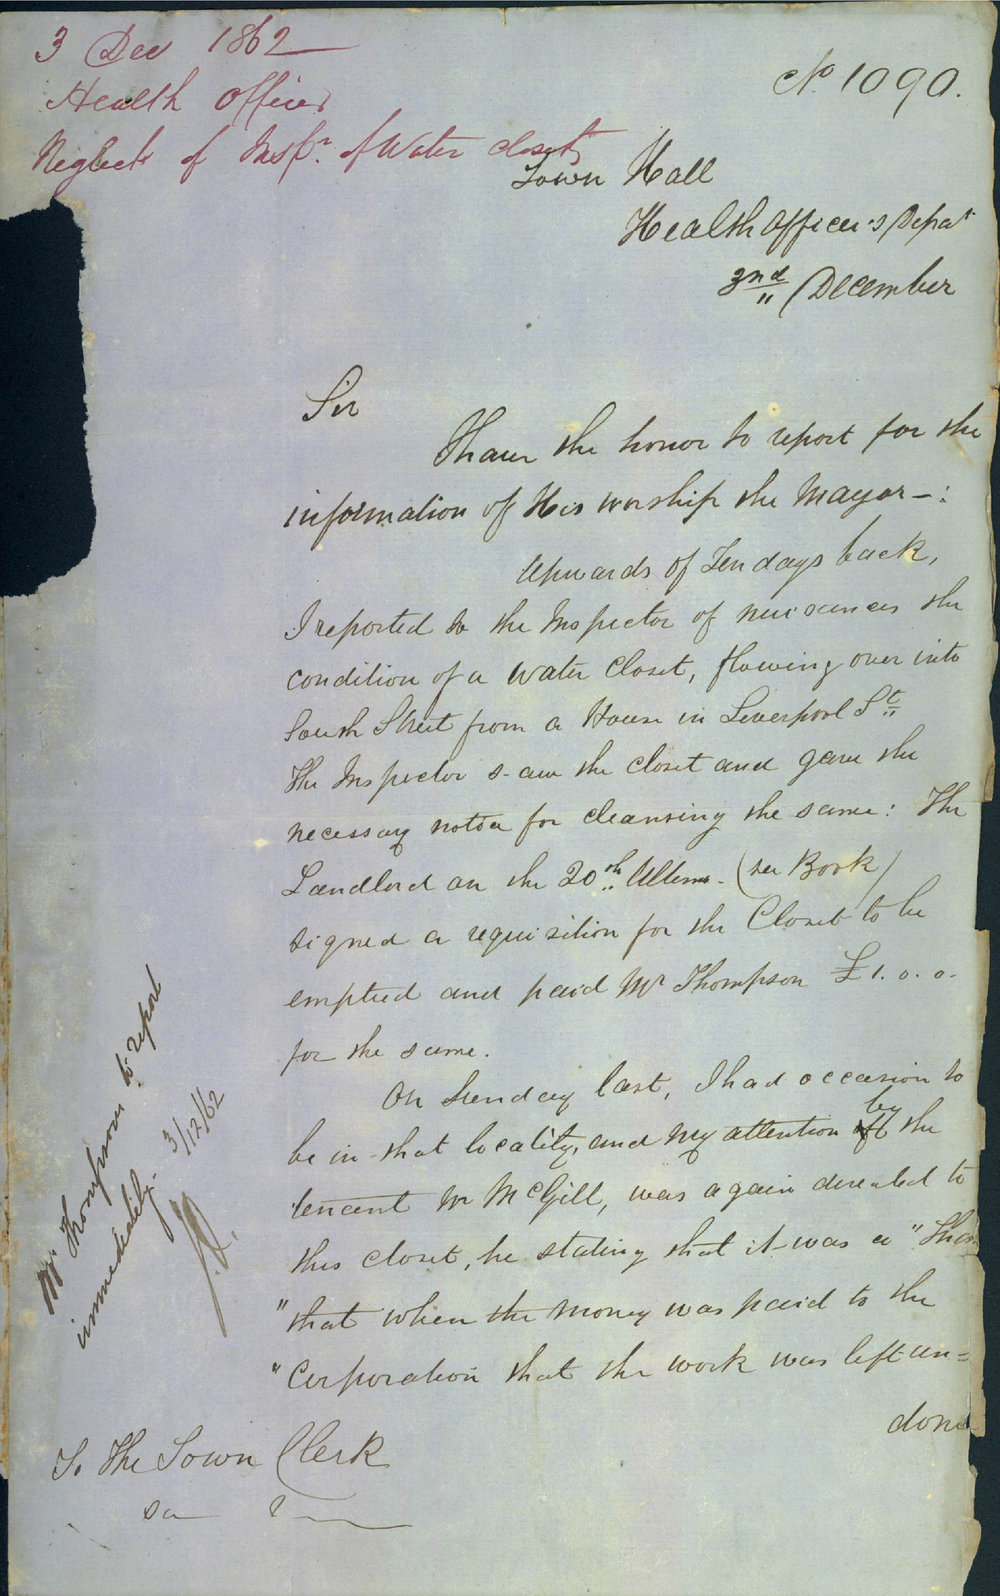 3 Dec 1862
Health Officer
Neglect of Inspr. of Water closets
No. 1090.
Town Hall
Health Officer's Depat
2nd December
Sir
I have the honor to report for the
information of His worship the Mayor -:
Upwards of Ten days back,
I reported to the Inspector of nuisances the
condition of a Water Closet, flowing over into
South Street from a House in Liverpool St.
The Inspector saw the closet and gave the
necessary notice for cleansing the same: The
Landlord on the 20th Ultimo. (see Book)
signed a requisition for the Closet to be
emptied and paid Mr Thompson £1. 0. 0.
for the same.
On Sunday last, I had occasion to
be in that locality, and my attention by the
tenant Mr McGill, was again directed to
this closet, he stating that it was a "Sham
"that when the money was paid to the
"Corporation that the work was left un=
done
Mr Thompson to report
immediately.
3/12/62
To The Town Clerk